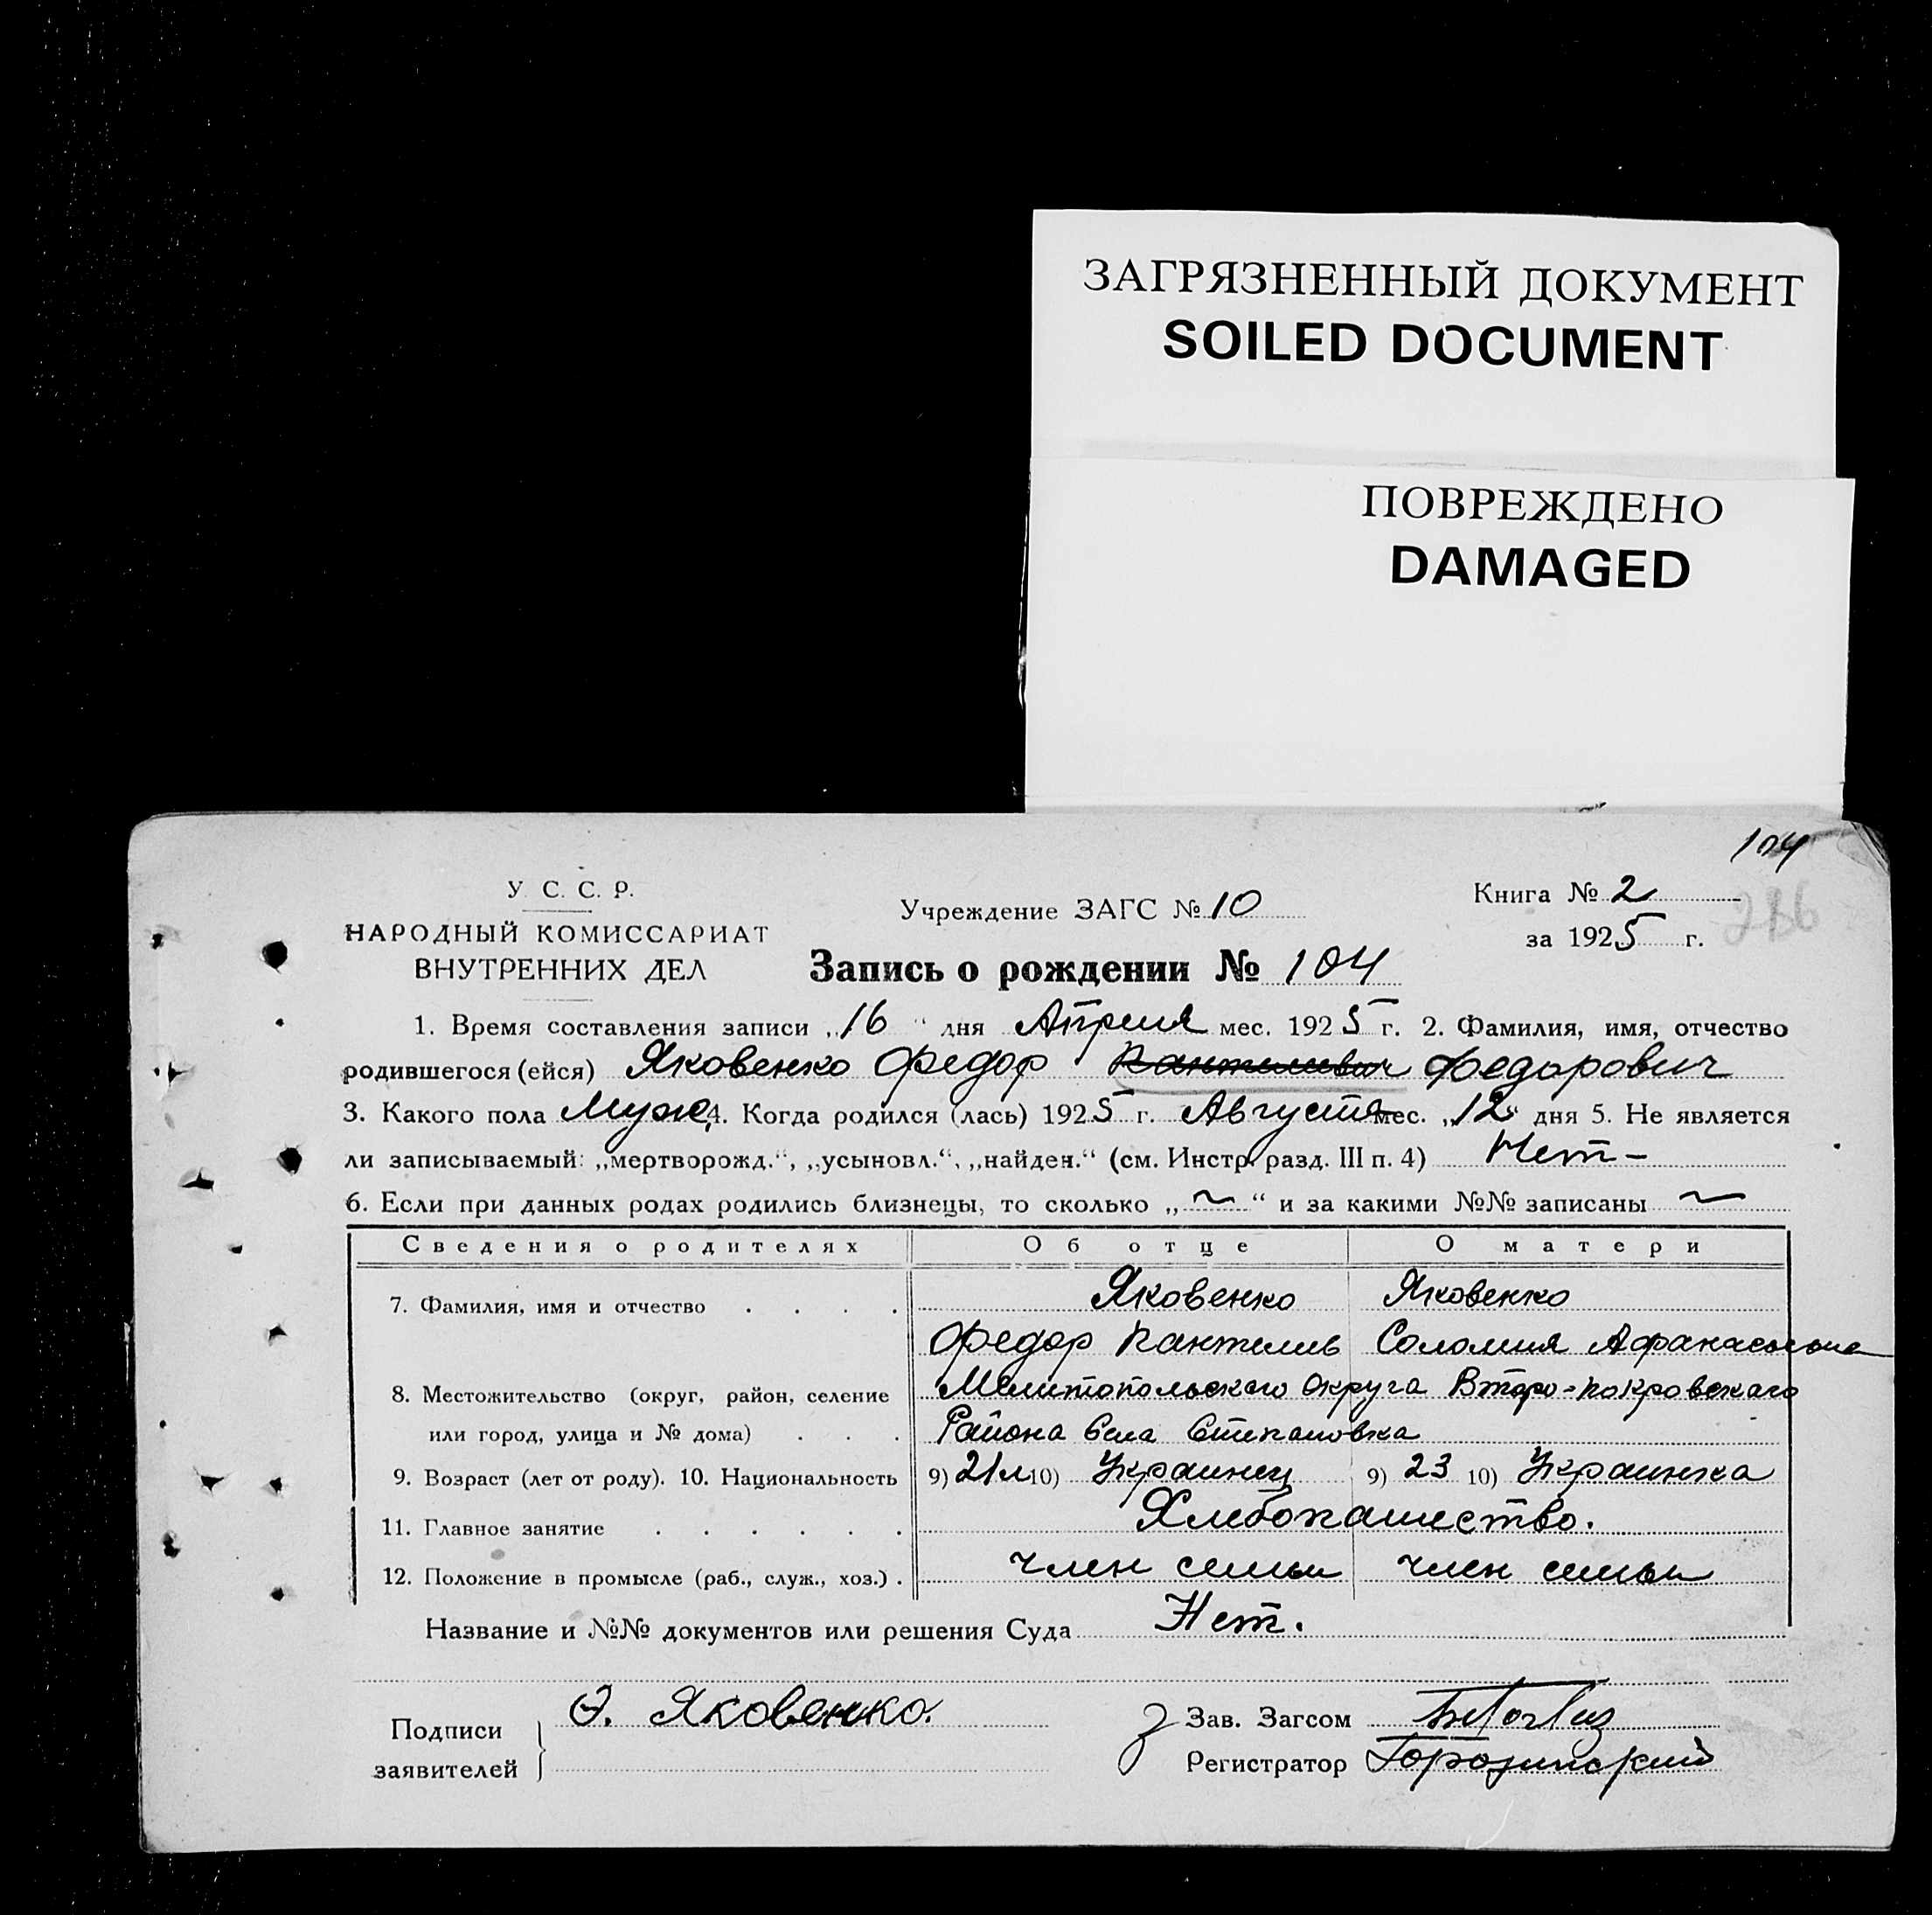 ЗАГРЯЗНЕННЫЙ ДОКУМЕНТ
SOILED DOCUMENT
ПОВРЕЖДЕНО
DAMAGED
104
У. С. С. Р.
НАРОДНЫЙ КОМИССАРИАТ
ВНУТРЕННИХ ДЕЛ
Учреждение ЗАГС № 10
Книга № 2
за 1925 г.
Запись о рождении № 104
1. Время составления записи „16“ дня Апреля мес. 1925 г. 2. Фамилия, имя, отчество
родившегося (ейся) Яковенко Федор Федорович
3. Какого пола Муж. 4. Когда родился (лась) 1925 г. Августа мес. „12“ дня 5. Не является
ли записываемый: „мертворожд.“, „усыновл.“, „найден.“ (см. Инстр. разд. III п. 4) Нет -
6. Если при данных родах родились близнецы, то сколько „~“ и за какими №№ записаны ~
Сведения о родителях Об отце О матери
7. Фамилия, имя и отчество . . . . Яковенко Яковенко
Федор Пантелив Соломия
8. Местожительство (округ, район, селение Мелитопольского Округа Втаро-покровского
или город, улица и № дома) . . . Района Села Стипановка
9. Возраст (лет от роду). 10. Национальность 9) 21 л 10) Украинец 9) 23 10) Украинка
11. Главное занятие . . . . . . Хлебопашество.
12. Положение в промысле (раб., служ., хоз.) . член семьи член семьи
Название и №№ документов или решения Суда Нет.
Подписи заявителей Яковенко.
Зав. Загсом
Регистратор